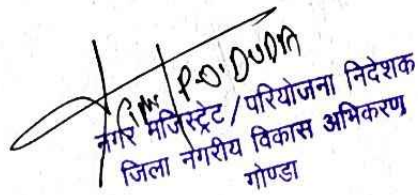 P.O. DUDA
नगर मजिस्ट्रेट / परियोजना निदेशक
जिला नगरीय विकास अभिकरण
गोण्डा